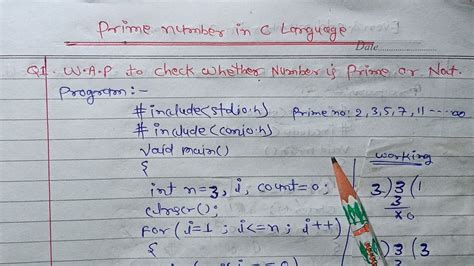 Prime number in C Language
Date
Q1. W.A.P to check whether Number is Prime or Not.
Program:-
#include<stdio.h> Prime no: 2, 3, 5, 7, 11 ---- ∞
#include<conio.h>
Void main()
{ working
int n=3, i, count=0; 3)3(1
clrscr(); 3
for(i=1 ; i<=n ; i++) x0
{ 3)3(3